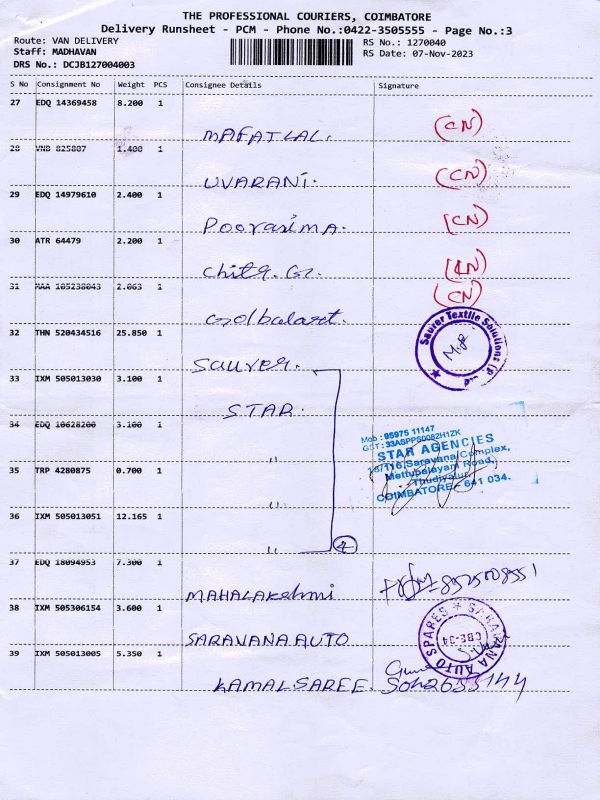 THE PROFESSIONAL COURIERS, COIMBATORE
Delivery Runsheet - PCM - Phone No.:0422-3505555 - Page No.:3
Route: VAN DELIVERY
RS No.: 1270040
Staff: MADHAVAN
RS Date: 07-Nov-2023
DRS No.: DCJB127004003
S No Consignment No Weight PCS Consignee Details Signature
27 EDQ 14369458 8.200 1
MAFATLAL. (CN)
28 VNB 825807 1.400 1
UVARANI. (CN)
29 EDQ 14979610 2.400 1
Poorasima. (CN)
30 ATR 64479 2.200 1
Chitq. Gr. (CN)
31 MAA 105238043 2.063 1
(CN)
32 THN 520434516 25.850 1
Saurer Textile Solutions (P
M.P
Saurer.
33 IXM 505013030 3.100 1
STAR.
34 EDQ 10628200 3.100 1
"
Mob : 95975 11147
GST : 33ASPPS0082H1ZK
STAR AGENCIES
16/116, Saravana Complex,
Mettupalayam Road,
Thudiyalur,
COIMBATORE - 641 034.
35 TRP 4280875 0.700 1
"
36 IXM 505013051 12.165 1
" 4
37 EDQ 18094953 7.300 1
MAHALAKSHMI
38 IXM 505306154 3.600 1
SARAVANA AUTO
SARAVANA AUTO SPARES
CBE-34
39 IXM 505013005 5.350 1
KAMAL SAREE.